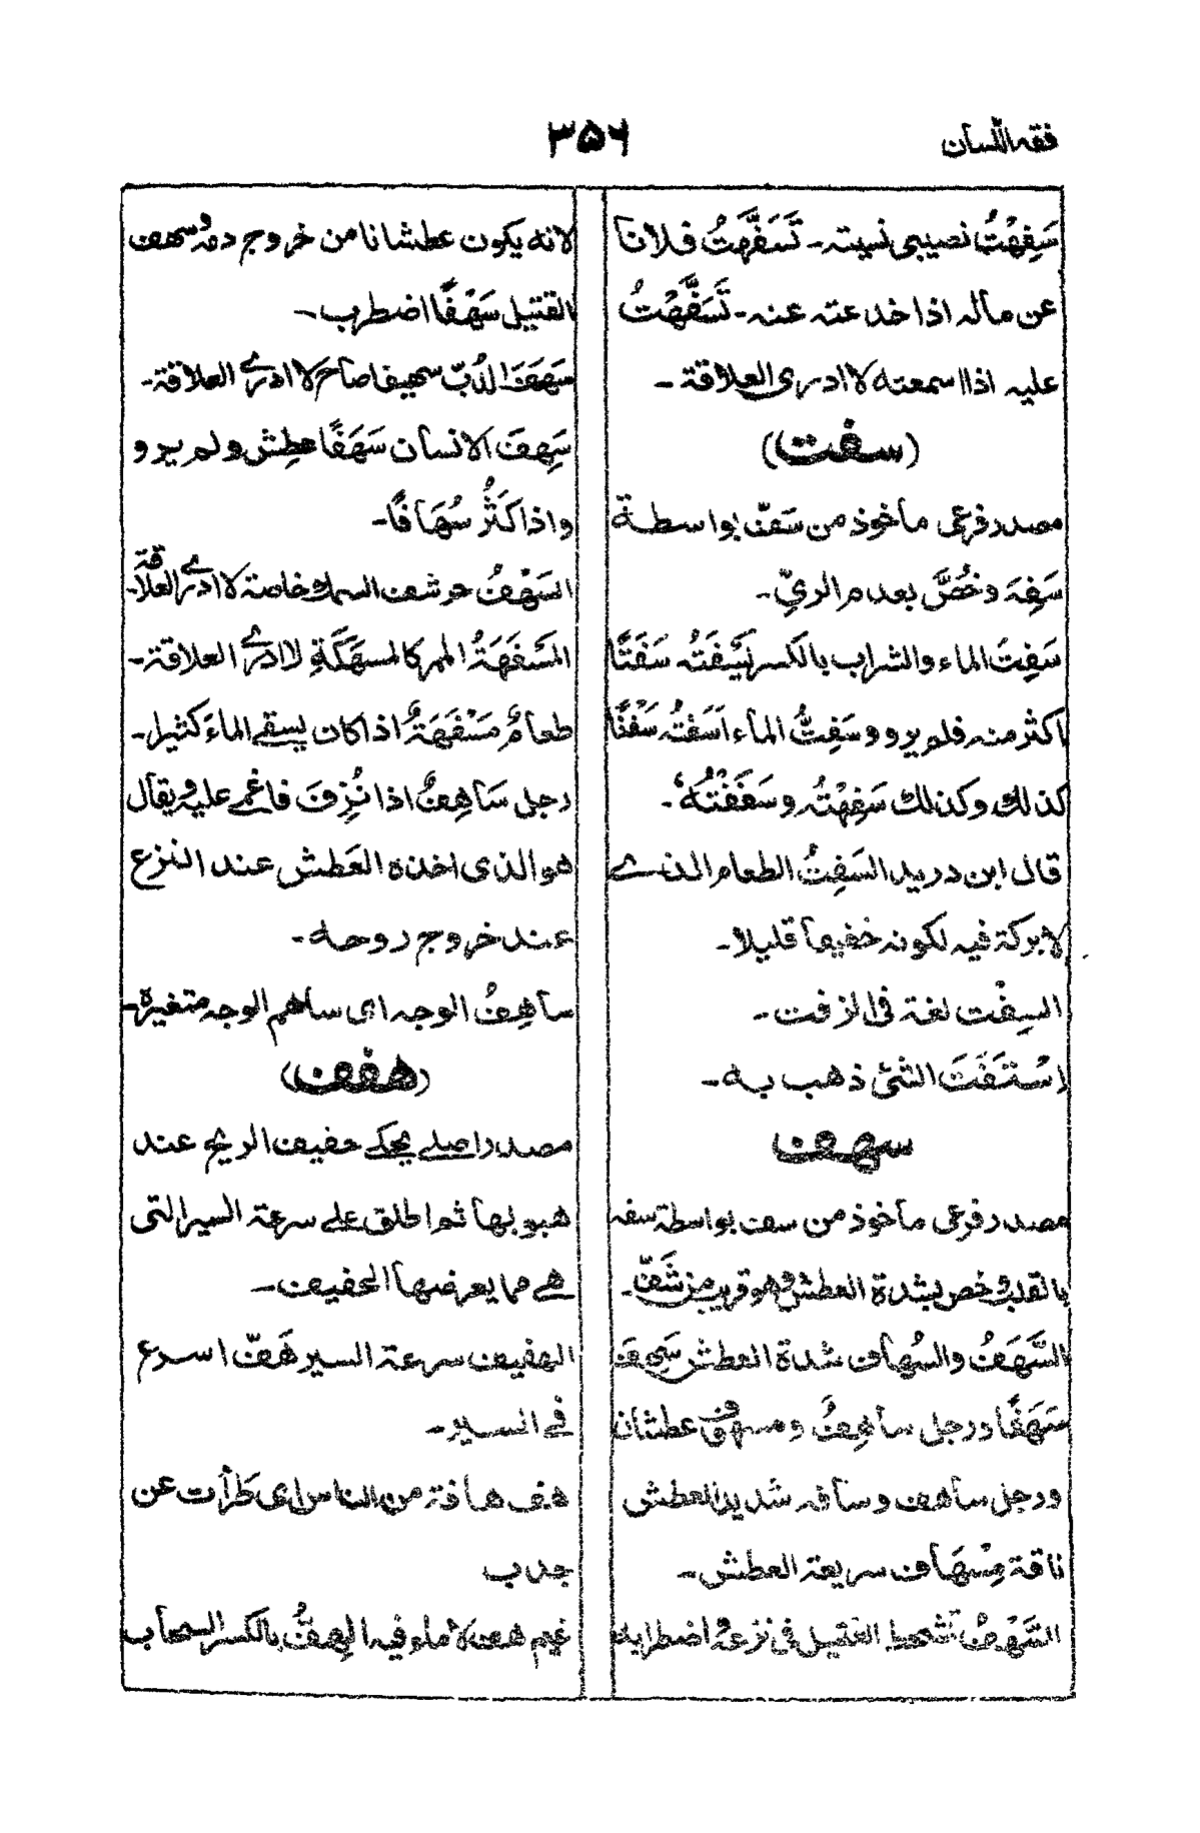 فقه اللسان
۳۵۶
سَفِهْتُ نصيبى نسيته۔ تَسَفَّهْتُ فلانا
عن ماله اذا خدعته عنه۔ تَسَفَّهْتُ
عليه اذا اسمعته لا ادرى العلاقة۔
(سفت)
مصدر فرعى ماخوذ من سَفّ بواسطة
سَفِهَ وخُصَّ بعدم الريّ۔
سَفِتَ الماء والشراب بالكسر يَسْفَتُه سَفَتًا
اكثر منه فلم يرو وسَفِتُّ الماء اَسَفتُّه سَفْتًا
كذلك وكذلك سَفِهْتُه وسَفَفْتُهُ۔
قال ابن دريد السَفِتُ الطعام الذے
لا بركة فيه لكونه خفيفا قليلا۔
السِفْت لغة فى الزفت۔
اِسْتَفَتَ الشئ ذهب به۔
سهف
مصدر فرعى ماخوذ من سف بواسطة سفه
بالقلب وخص بشدة العطش وهو قريب من شَفّ۔
السَّهَفُ والسُهاف شدة العطش سَهِفَ
سَهَفًا ورجل ساهِفٌ ومسهوف عطشان
ورجل ساهف وسافه شديد العطش
ناقة مِسْهَاف سريعة العطش۔
السَّهْفُ تشحط القتيل فى نزعه واضطرابه
لانه يكون عطشانا من خروج دمه وسهف
القتيل سَهْفًا اضطرب۔
سَهَفَ الدُبّ سهيفا صاح لا ادرے العلاقة۔
سَهِفَ الانسان سَهَفًا عطِش ولم يرو
واذا كَثُر سُهَافًا۔
السَهْفُ حرشف السمك خاصة لا ادرے العلاقة۔
المَسْفَهَةُ الممر كالمسهَكَةِ لا ادرے العلاقة۔
طعامٌ مَسْفَهَةٌ اذا كان يسقے الماءَ كثيرا۔
رجل سَاهِفٌ اذا نُزِفَ فاغمے عليه ويقال
هو الذى اخذه العَطش عند النزع
عند خروج روحه۔
ساهِفُ الوجه اى ساهم الوجه متغيرة۔
(هفف)
مصدر اصلے يحكے حفيف الريح عند
هبوبها ثم اطلق علے سرعة السير التى
هے مما يعرضها الحفيف۔
الهفيف سرعة السير هَفّ اسرع
فے السير۔
هف هافة من الناس اى طرأت عن
جدب
غيم هف لا ماء فيه الهِفُّ بالكسر السحاب